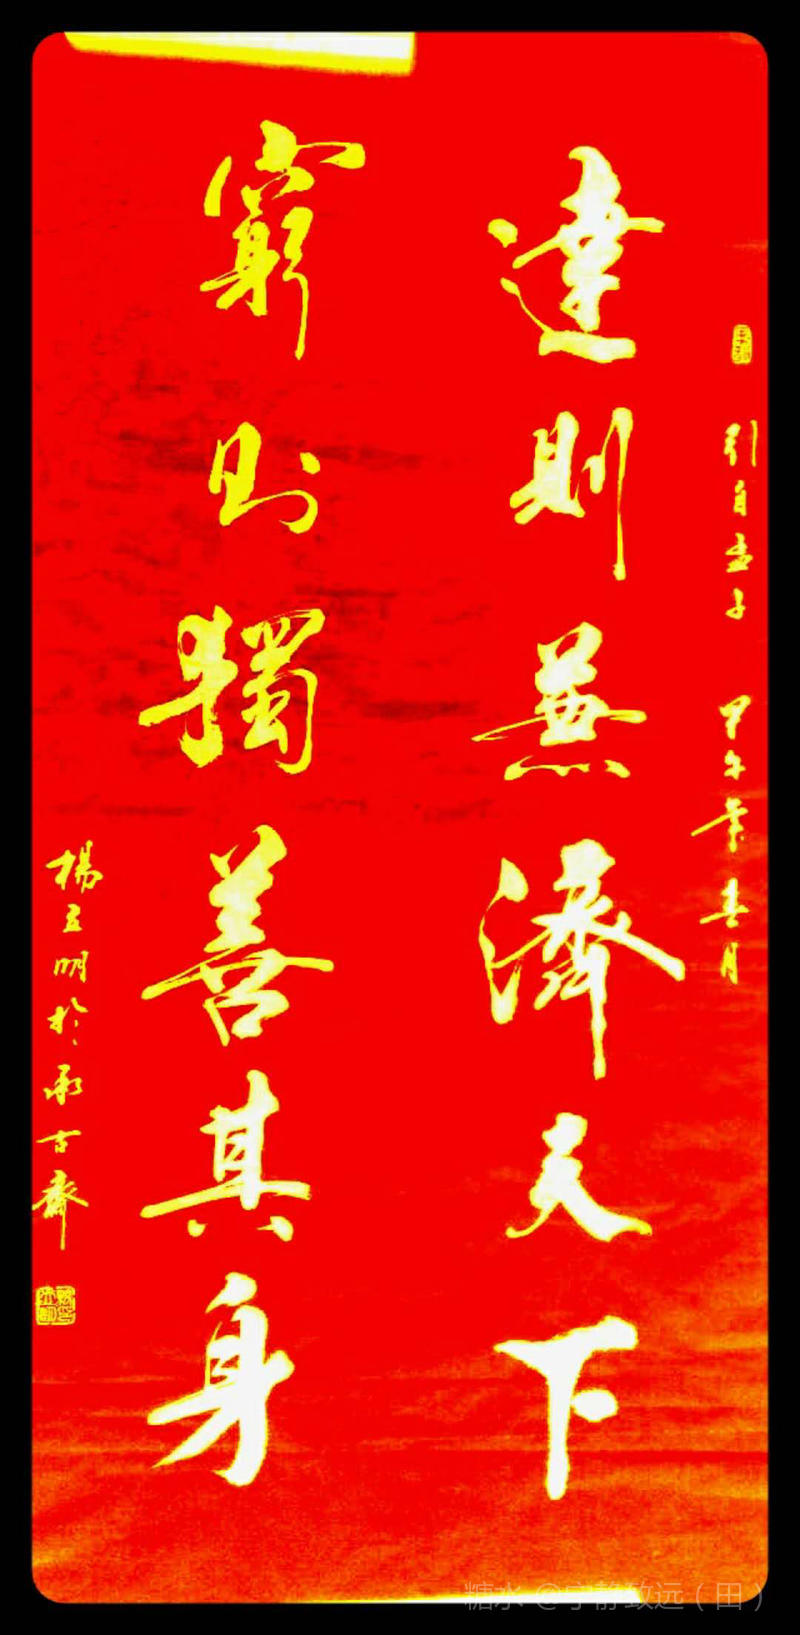 引自孟子 甲午年春月
達則兼濟天下
窮則獨善其身
楊立明於承古齋
糖水 @宁静致远（田）